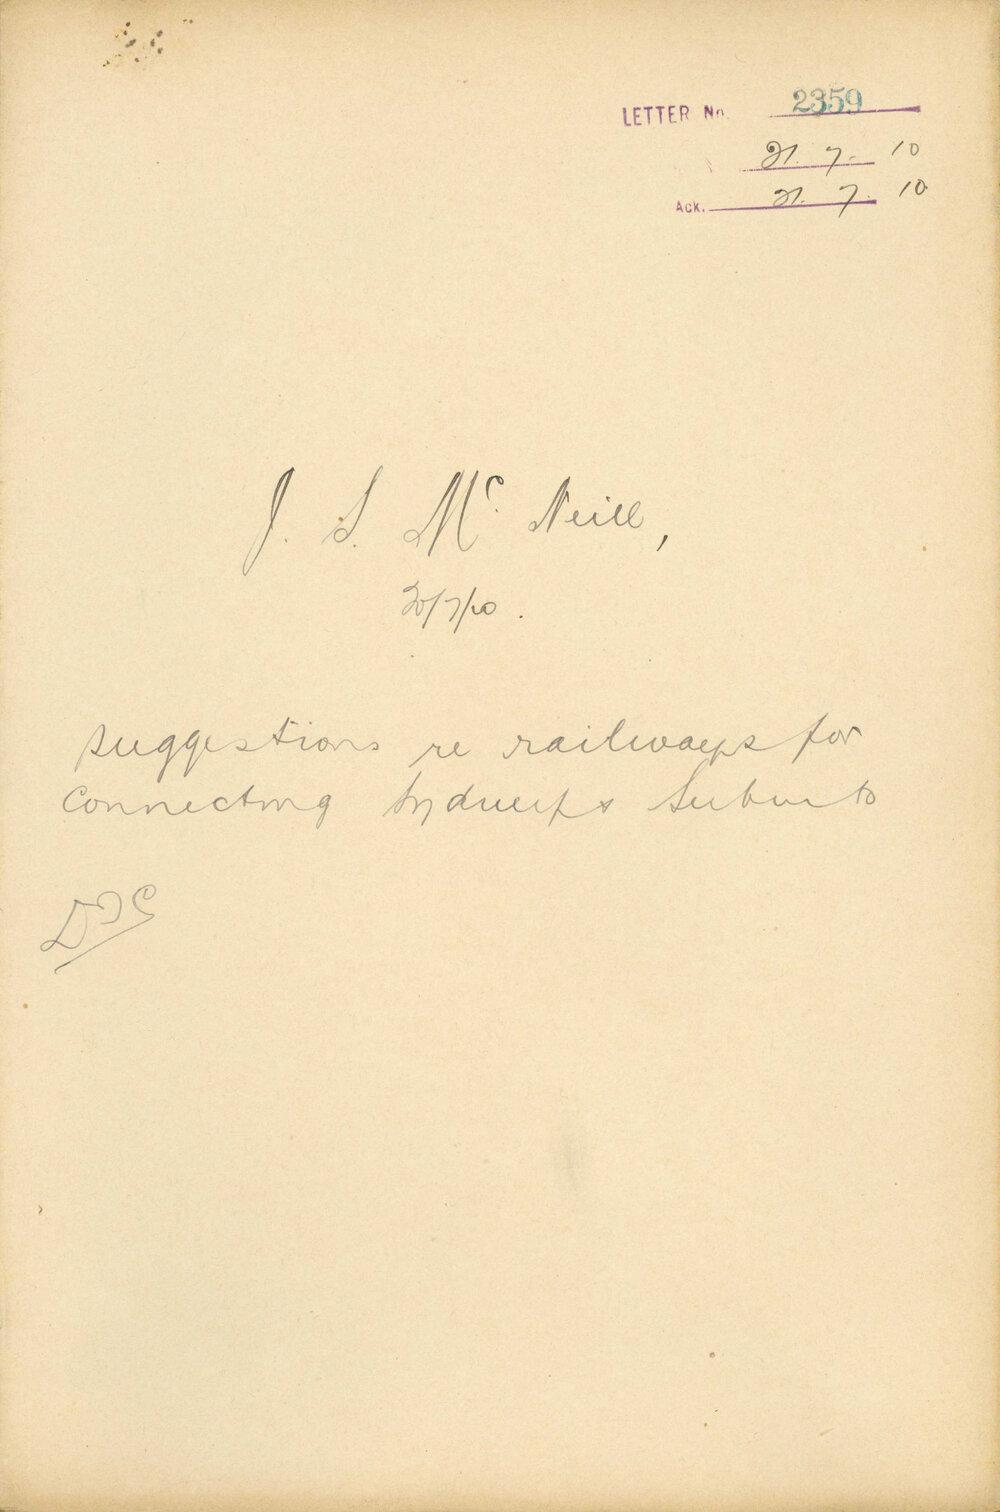 LETTER No. 2359
21. 7. 10
Ack. 21. 7. 10
J. S. McNeill,
20/7/10.
suggestions re railways for
connecting Sydney & Suburbs